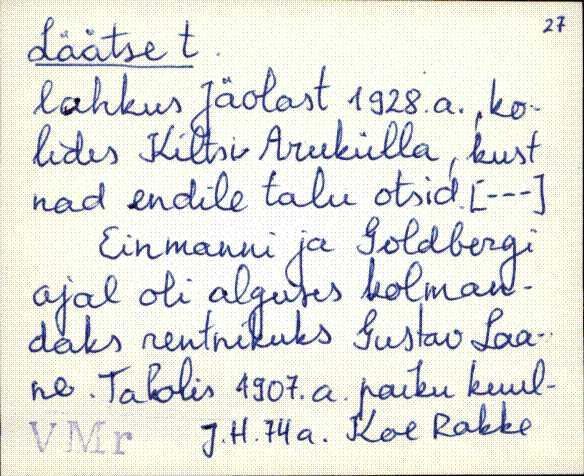 27
Läätse t.
lahkus Jäolast 1928.a., ko-
lides Kiltsi Arukülla, kust
nad endile talu otsid. [---]
Einmanni ja Goldbergi
ajal oli alguses kolman-
daks rentnikuks Gustav Laa-
ne. Ta olis 1907.a. paiku kuul-
VMr J.H. 74a. Koe Rakke